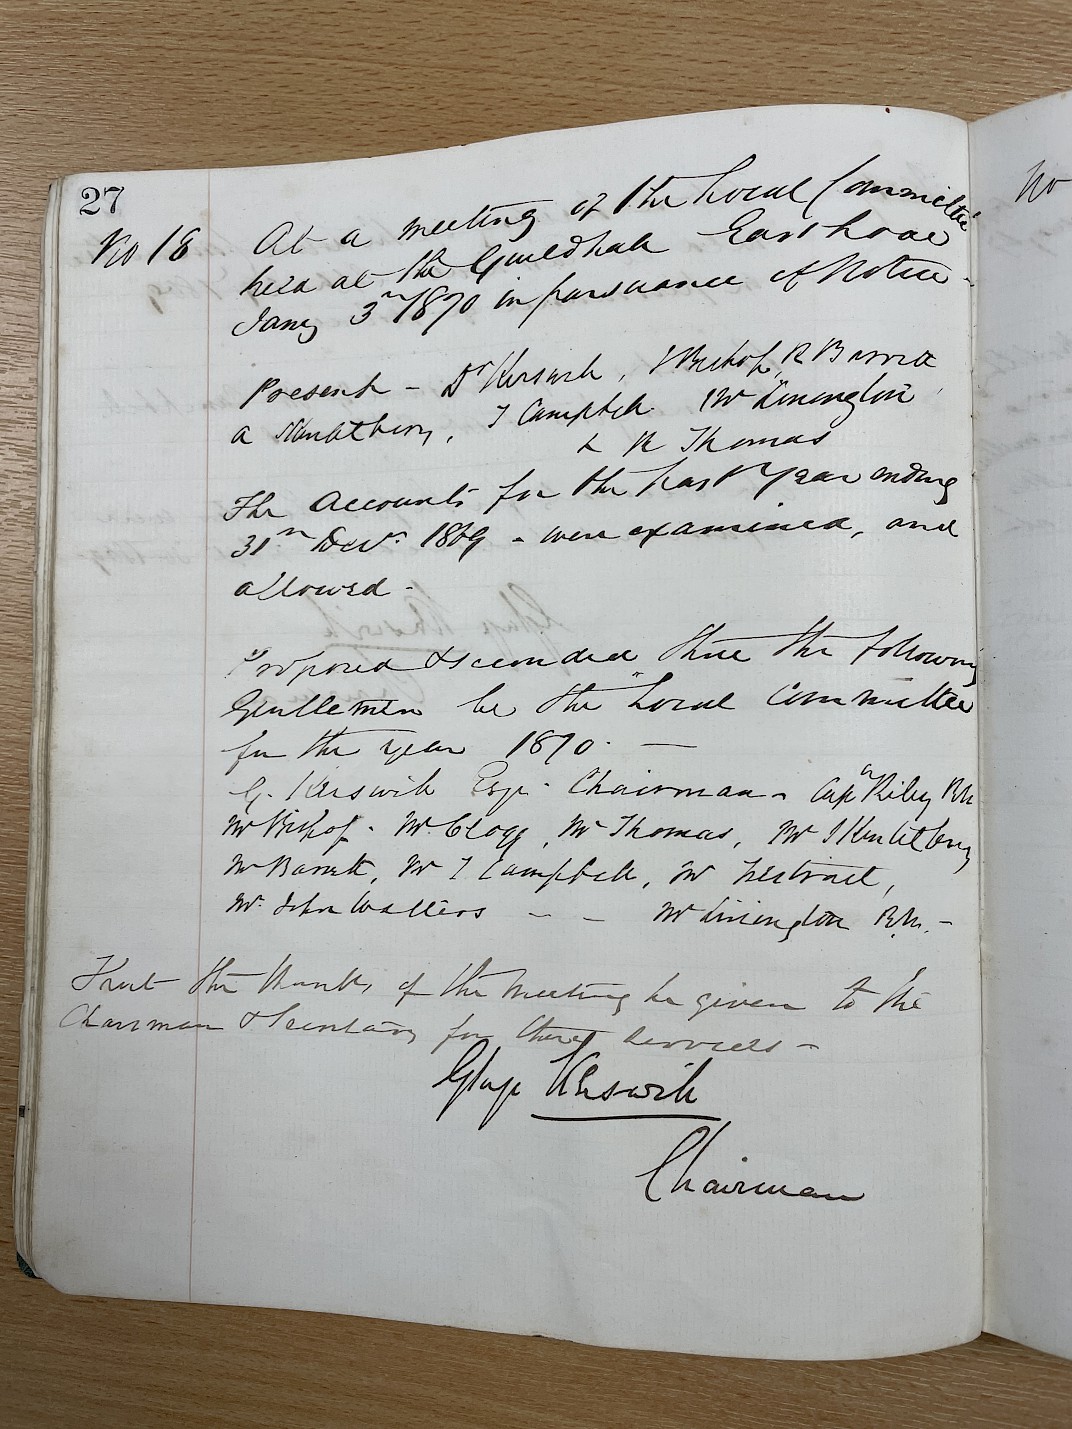 27
No 18
At a meeting of the Local Committee
held at the Guildhall East Looe
Jany 3rd 1870 in pursuance of Notice -
Present - Dr Kerswill, J Bishop, R Barrett
a , T Campbell Mr Linington
& R Thomas
The Accounts for the past Year ending
31st Decr 1869 - were examined, and
allowed -
Proposed & seconded that the following
Gentlemen be the Local Committee
for the year 1870. —
G. Kerswill Esqr Chairman - Capn Riley RN
Mr Bishop - Mr Clogg, Mr Thomas, Mr J
Mr Barrett, Mr T Campbell, Mr
Mr John Walters - - Mr Linington RN. -
That the thanks of the Meeting be given to the
Chairman & Secretary for their services -
George Kerswill
Chairman
No